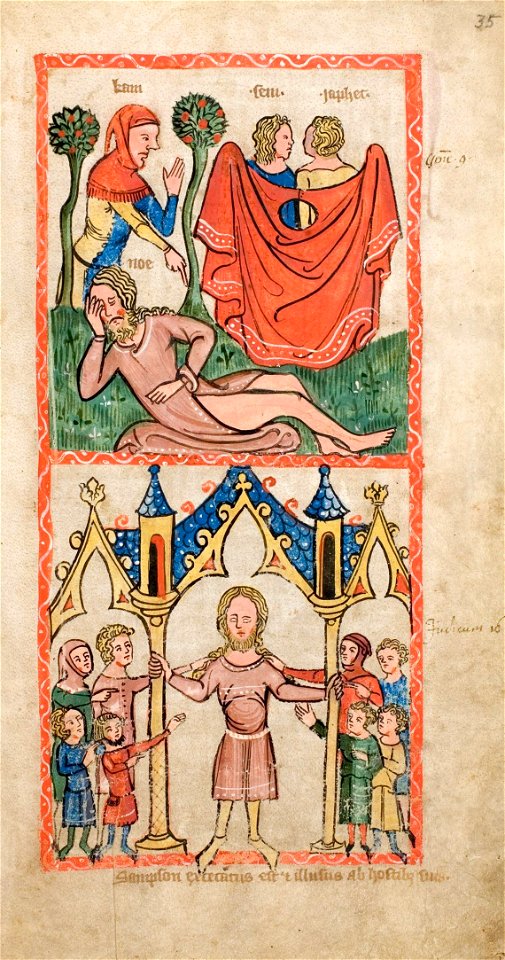 35
kam
·sem· ·japhet·
Gen̄. 9
noe
Judicum 16
Sampson excecatus est ⁊ illusus ab hostibꝫ suis.